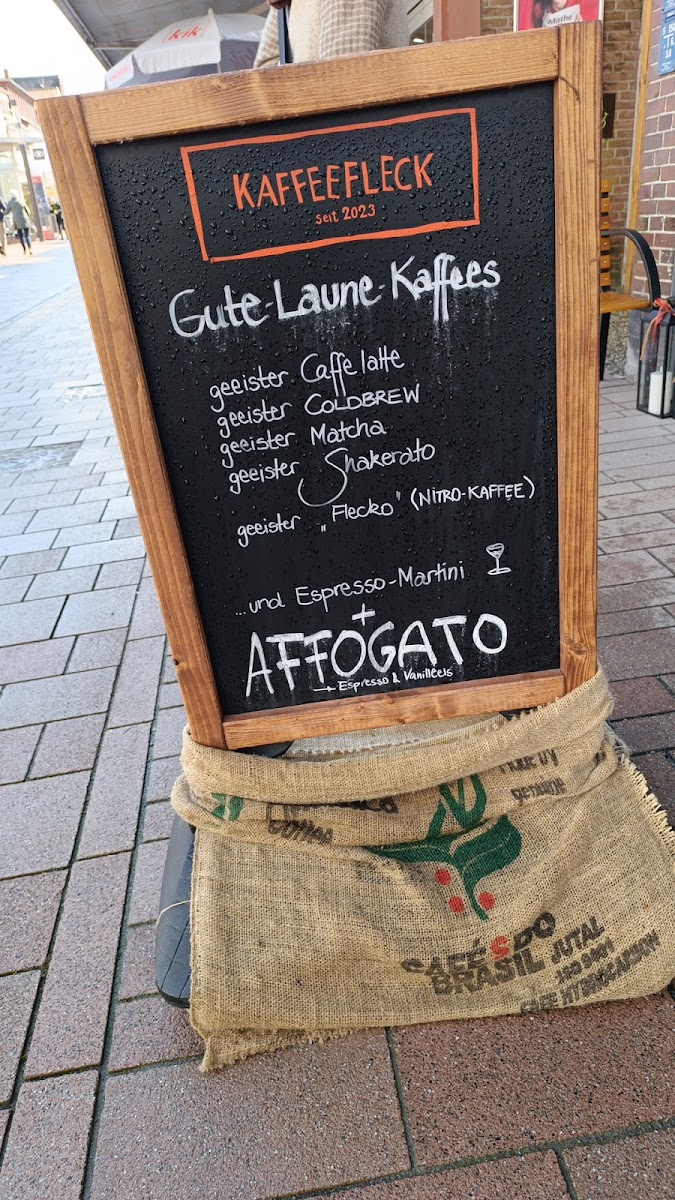 kik
Mathe
KAFFEEFLECK
seit 2023
Gute-Laune-Kaffees
geeister Caffe latte
geeister COLDBREW
geeister Matcha
geeister Shakerato
geeister „Flecko" (NITRO-KAFFEE)
...und Espresso-Martini
+
AFFOGATO
→ Espresso & Vanilleeis
genuine
coffee
CAFÉS DO
BRASIL JUTAL